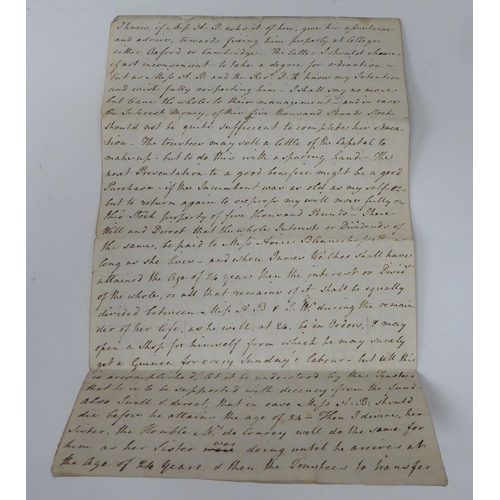 I know, if Miss A. B. asks it of him, give his assistance
and advice, towards fixing him properly at College
either Oxford or Cambridge. The latter I should choose,
if not inconvenient - to take a degree for ordination -
but as Miss A. B and the Revd. D. H know my Intention
and wish fully respecting him - I shall say no more
but leave the whole to their management - and in case
the Interest Money, of this five thousand Pounds Stock
should not be quite sufficient to complete his educa-
tion - The trustees may sell a little of the Capital to
make up - but to do this with a sparing hand - The
next Presentation to a good benefice might be a good
Purchase - if the Incumbent was as old as my self 82 -
but to return again to express my will more fully on
this Stock property of five thousand Pounds - I here
Will and Direct that the whole Interest or Dividends of
the same, be paid to Miss Anne as
long as she lives - and when James shall have
attained the Age of 24 years then the interest or Divid
of the whole, or all that remains of it shall be equally
divided between Miss A. B & J. W during the remain-
der of her life, as he will, at 24, be in Orders, & may
open a Shop for himself from which he may surely
get a Guinea for every Sunday's Labour - but till this
is accomplished, let it be understood by the Trustees
that he is to be supported with decency from the Fund
also I will & direct, that in case Miss A. B. should
die before he attains the age of 24 - Then I desire, her
Sister, the Honble Mrs de Courcy will do the same for
him as her Sister was doing until he arrives at
the Age of 24 Years & then the Trustees to transfer